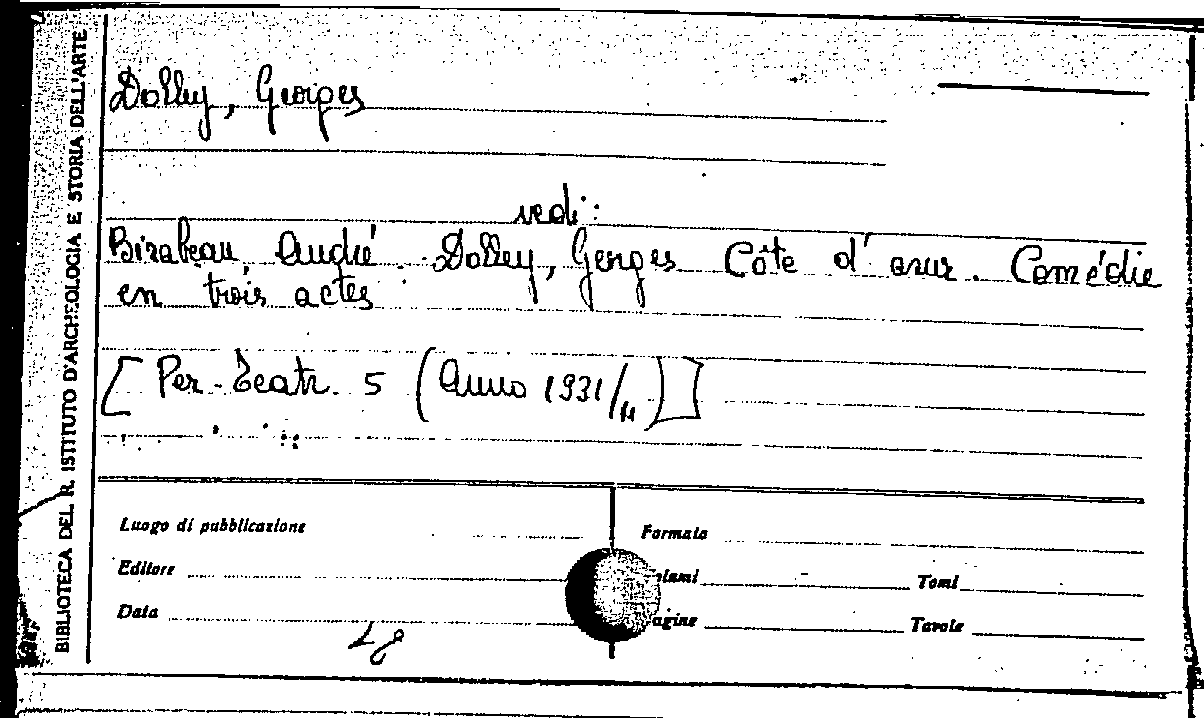 BIBLIOTECA DEL R. ISTITUTO D'ARCHEOLOGIA E STORIA DELL'ARTE
Dolley, Georges
vedi:
Birabeau, André. Dolley, Georges Côte d'azur. Comédie
en trois actes
[Per. Teatr. 5 (Anno 1931/II)]
Luogo di pubblicazione
Formato
Editore
olumi
Tomi
Data
agine
Tavole